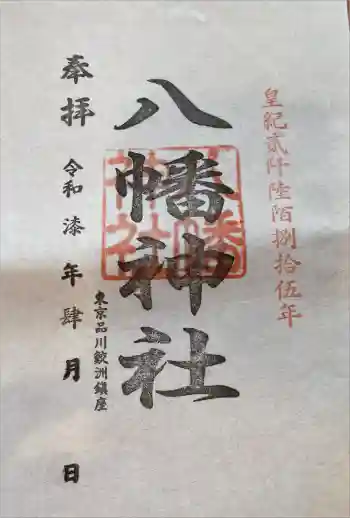 皇紀貳阡陸陌捌拾伍年
八幡神社
八幡神社
東京品川鮫洲鎮座
奉拝
令和漆年肆月 日